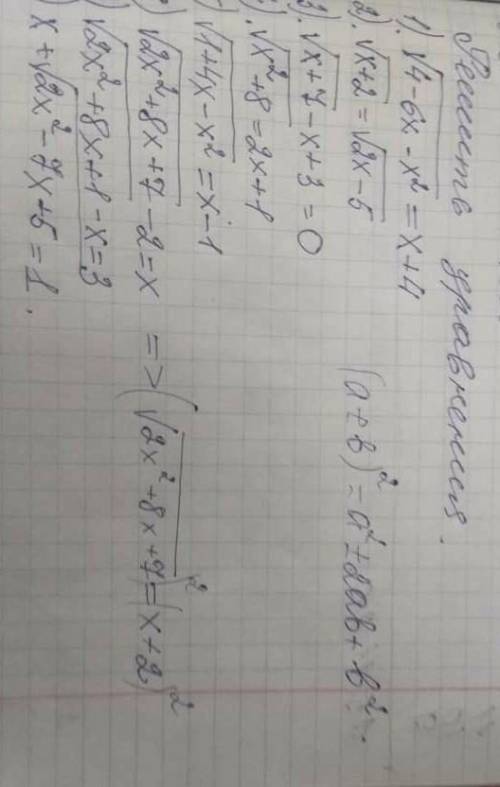 Решить уравнения.
1) √4-6x-x² = x+4
2). √x+2 = √2x-5 (a±b)² = a²±2ab+b².
3). √x+7 - x+3 = 0
√x²+8 = 2x+1
√1+4x-x² = x-1
√2x²+8x+7 - 2 = x => (√2x²+8x+7)² = (x+2)²
√2x²+8x+1 - x = 3
x+√2x²-7x+5 = 1.